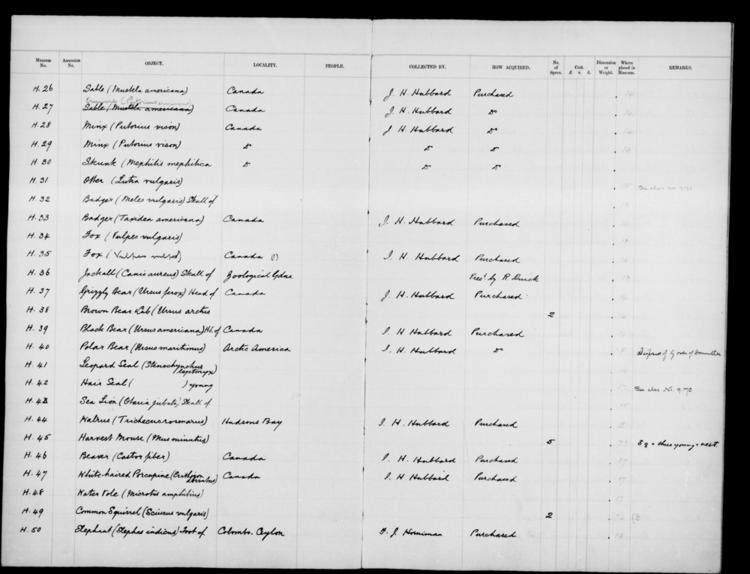 Museum No. Accession No. OBJECT. LOCALITY. PEOPLE. COLLECTED BY. HOW ACQUIRED. No. of Specs. Cost. £ s. d. Dimension or Weight. Where placed in Museum. REMARKS.
H. 26 Sable (Mustela americana) Canada J. H. Hubbard Purchased
H. 27 Sable (Mustela americana) Canada J. H. Hubbard Do
H. 28 Minx (Putorius vison) Canada J. H. Hubbard Do
H. 29 Minx (Putorius vison) Do Do Do
H. 30 Skunk (Mephitis mephitica Do Do Do
H. 31 Otter (Lutra vulgaris)
H. 32 Badger (Meles vulgaris) Skull of
H. 33 Badger (Taxidea americana) Canada J. H. Hubbard Purchased
H. 34 Fox (Vulpes vulgaris)
H. 35 Fox ( Canada (?) J. H. Hubbard Purchased
H. 36 Jackall (Canis aureus) Skull of Zoological Gdns Pres'd by R. Quick
H. 37 Grizzly Bear (Ursus ferox) Head of Canada J. H. Hubbard Purchased
H. 38 Brown Bear Cub (Ursus arctus 2
H. 39 Black Bear (Ursus americana) Hd. of Canada J. H. Hubbard Purchased
H. 40 Polar Bear (Ursus maritimus) Arctic America J. H. Hubbard Do Disposed of by order of Committee
H. 41 Leopard Seal (Stenorhynchus
leptonyx)
H. 42 Hair Seal ( ) young See also No. 9.72
H. 43 Sea Lion (Otaria jubata) Skull of
H. 44 Walrus (Trichecus rosmarus) Hudsons Bay J. H. Hubbard Purchased
H. 45 Harvest Mouse (Mus minutus) 5 young + nest
H. 46 Beaver (Castor fiber) Canada J. H. Hubbard Purchased
H. 47 White-haired Porcupine (Erethizon
dorsatus) Canada J. H. Hubbard Purchased
H. 48 Water Vole (Microtus amphibius)
H. 49 Common Squirrel (Sciurus vulgaris) 2
H. 50 Elephant (Elephas indicus) Foot of Colombo. Ceylon F. J. Horniman Purchased